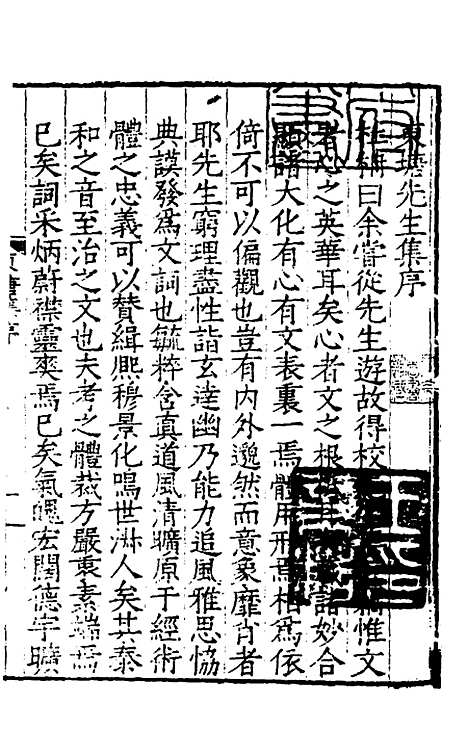 東塘先生集序
杜綱曰余嘗從先生遊故得校惟文
者心之英華耳矣心者文之根諸妙合
顯諸大化有心有文表裏一焉體用形焉相爲依
倚不可以偏觀也豈有内外邈然而意象靡肖者
耶先生窮理盡性詣玄達幽乃能力追風雅思恊
典謨發爲文詞也毓粹含真道風清曠原于經術
體之忠義可以贊緝熈穆景化鳴世淋人矣其泰
和之音至治之文也夫考之體裁方嚴秉素端焉
已矣詞采炳蔚襟靈爽焉已矣氣魄宏闊德宇曠